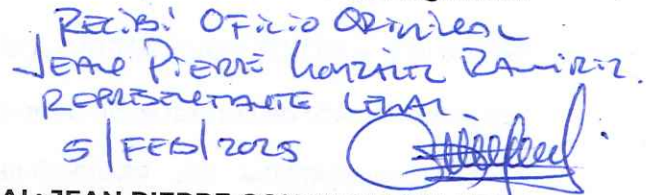 RECIBÍ OFICIO ORIGINAL
JEAN PIERRE GONZÁLEZ RAMÍREZ.
REPRESENTANTE LEGAL
5/FEB/2025